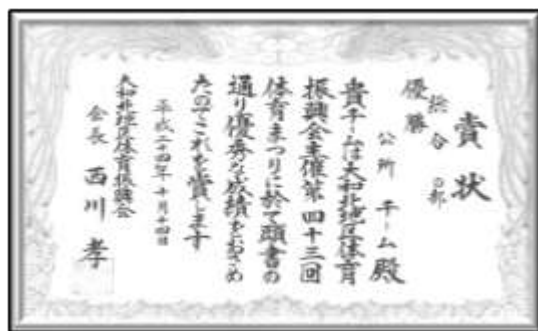 賞状
総合の部
優勝
公所チーム殿
貴チームは大和北地区体育
振興会主催第四十三回
体育まつりに於て頭書の
通り優秀な成績をおさめ
たのでこれを賞します
平成二十四年十月十四日
大和北地区体育振興会
会長 西川 孝